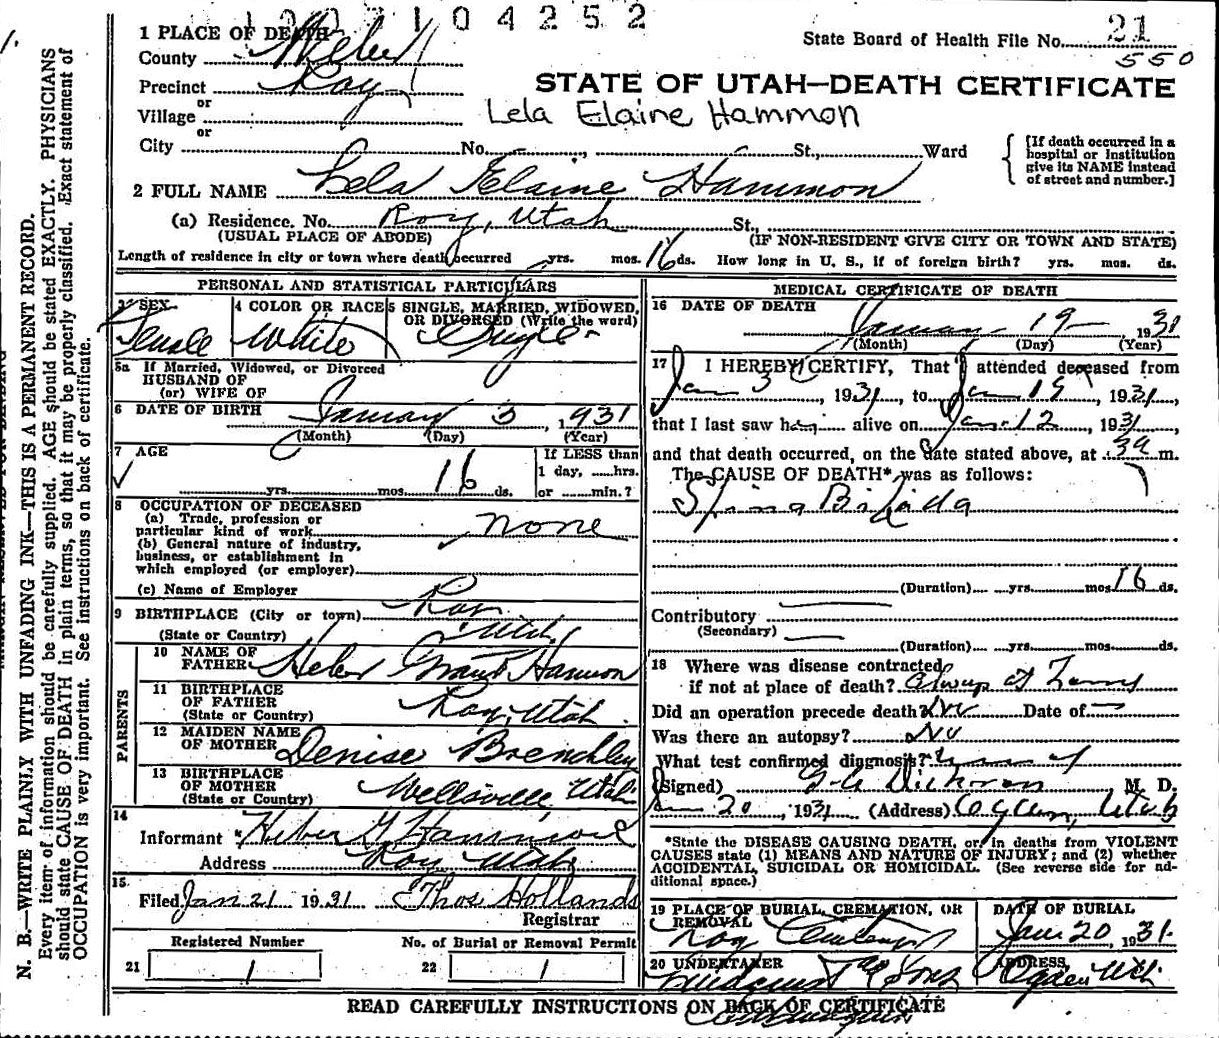 1 0 0 3 1 0 4 2 5 2
State Board of Health File No. 21
550
1 PLACE OF DEATH
County Weber
Precinct Roy
or
Village
or
City No. , St., Ward
STATE OF UTAH—DEATH CERTIFICATE
Lela Elaine Hammon
[If death occurred in a hospital or Institution give its NAME instead of street and number.]
2 FULL NAME Lela Elaine Hammon
(a) Residence. No. Roy, Utah St.,
(USUAL PLACE OF ABODE) (IF NON-RESIDENT GIVE CITY OR TOWN AND STATE)
Length of residence in city or town where death occurred yrs. mos. 16 ds. How long in U. S., if of foreign birth? yrs. mos. ds.
PERSONAL AND STATISTICAL PARTICULARS
3 SEX 4 COLOR OR RACE 5 SINGLE, MARRIED, WIDOWED,
OR DIVORCED (Write the word)
Female White Single
5a If Married, Widowed, or Divorced
HUSBAND OF
(or) WIFE OF
6 DATE OF BIRTH January 3, 1931
(Month) (Day) (Year)
7 AGE If LESS than
1 day, ......hrs.
yrs. mos. 16 ds. or ........min.?
8 OCCUPATION OF DECEASED
(a) Trade, profession or
particular kind of work none
(b) General nature of industry,
business, or establishment in
which employed (or employer)
(c) Name of Employer
9 BIRTHPLACE (City or town) Roy
(State or Country) Utah
PARENTS
10 NAME OF
FATHER Heber Grant Hammon
11 BIRTHPLACE
OF FATHER
(State or Country) Roy, Utah
12 MAIDEN NAME
OF MOTHER Denise Brenchley
13 BIRTHPLACE
OF MOTHER
(State or Country) Wellsville Utah
14
Informant Heber G Hammond
Address Roy Utah
15
Filed Jan 21 1931 Thos Hollands
Registrar
Registered Number No. of Burial or Removal Permit
21 1 22 1
MEDICAL CERTIFICATE OF DEATH
16 DATE OF DEATH
January 19 1931
(Month) (Day) (Year)
17 I HEREBY CERTIFY, That I attended deceased from
Jan 3, 1931, to Jan 19, 1931,
that I last saw her alive on Jan. 12, 1931,
and that death occurred, on the date stated above, at m.
The CAUSE OF DEATH* was as follows:
Spina Bifida
(Duration) yrs. mos. 16 ds.
Contributory
(Secondary)
(Duration) yrs. mos. ds.
18 Where was disease contracted
if not at place of death?
Did an operation precede death? No Date of —
Was there an autopsy? No
What test confirmed diagnosis?
(Signed) M. D.
Jan 20, 1931 (Address) Ogden, Utah
*State the DISEASE CAUSING DEATH, or, in deaths from VIOLENT
CAUSES state (1) MEANS AND NATURE OF INJURY; and (2) whether
ACCIDENTAL, SUICIDAL OR HOMICIDAL. (See reverse side for ad-
ditional space.)
19 PLACE OF BURIAL, CREMATION, OR
REMOVAL
Roy Cemetery
DATE OF BURIAL
Jan. 20, 1931.
20 UNDERTAKER & Sons
ADDRESS
Ogden Utah
READ CAREFULLY INSTRUCTIONS ON BACK OF CERTIFICATE
N. B.—WRITE PLAINLY WITH UNFADING INK—THIS IS A PERMANENT RECORD.
Every item of information should be carefully supplied. AGE should be stated EXACTLY. PHYSICIANS
should state CAUSE OF DEATH in plain terms, so that it may be properly classified. Exact statement of
OCCUPATION is very important. See instructions on back of certificate.